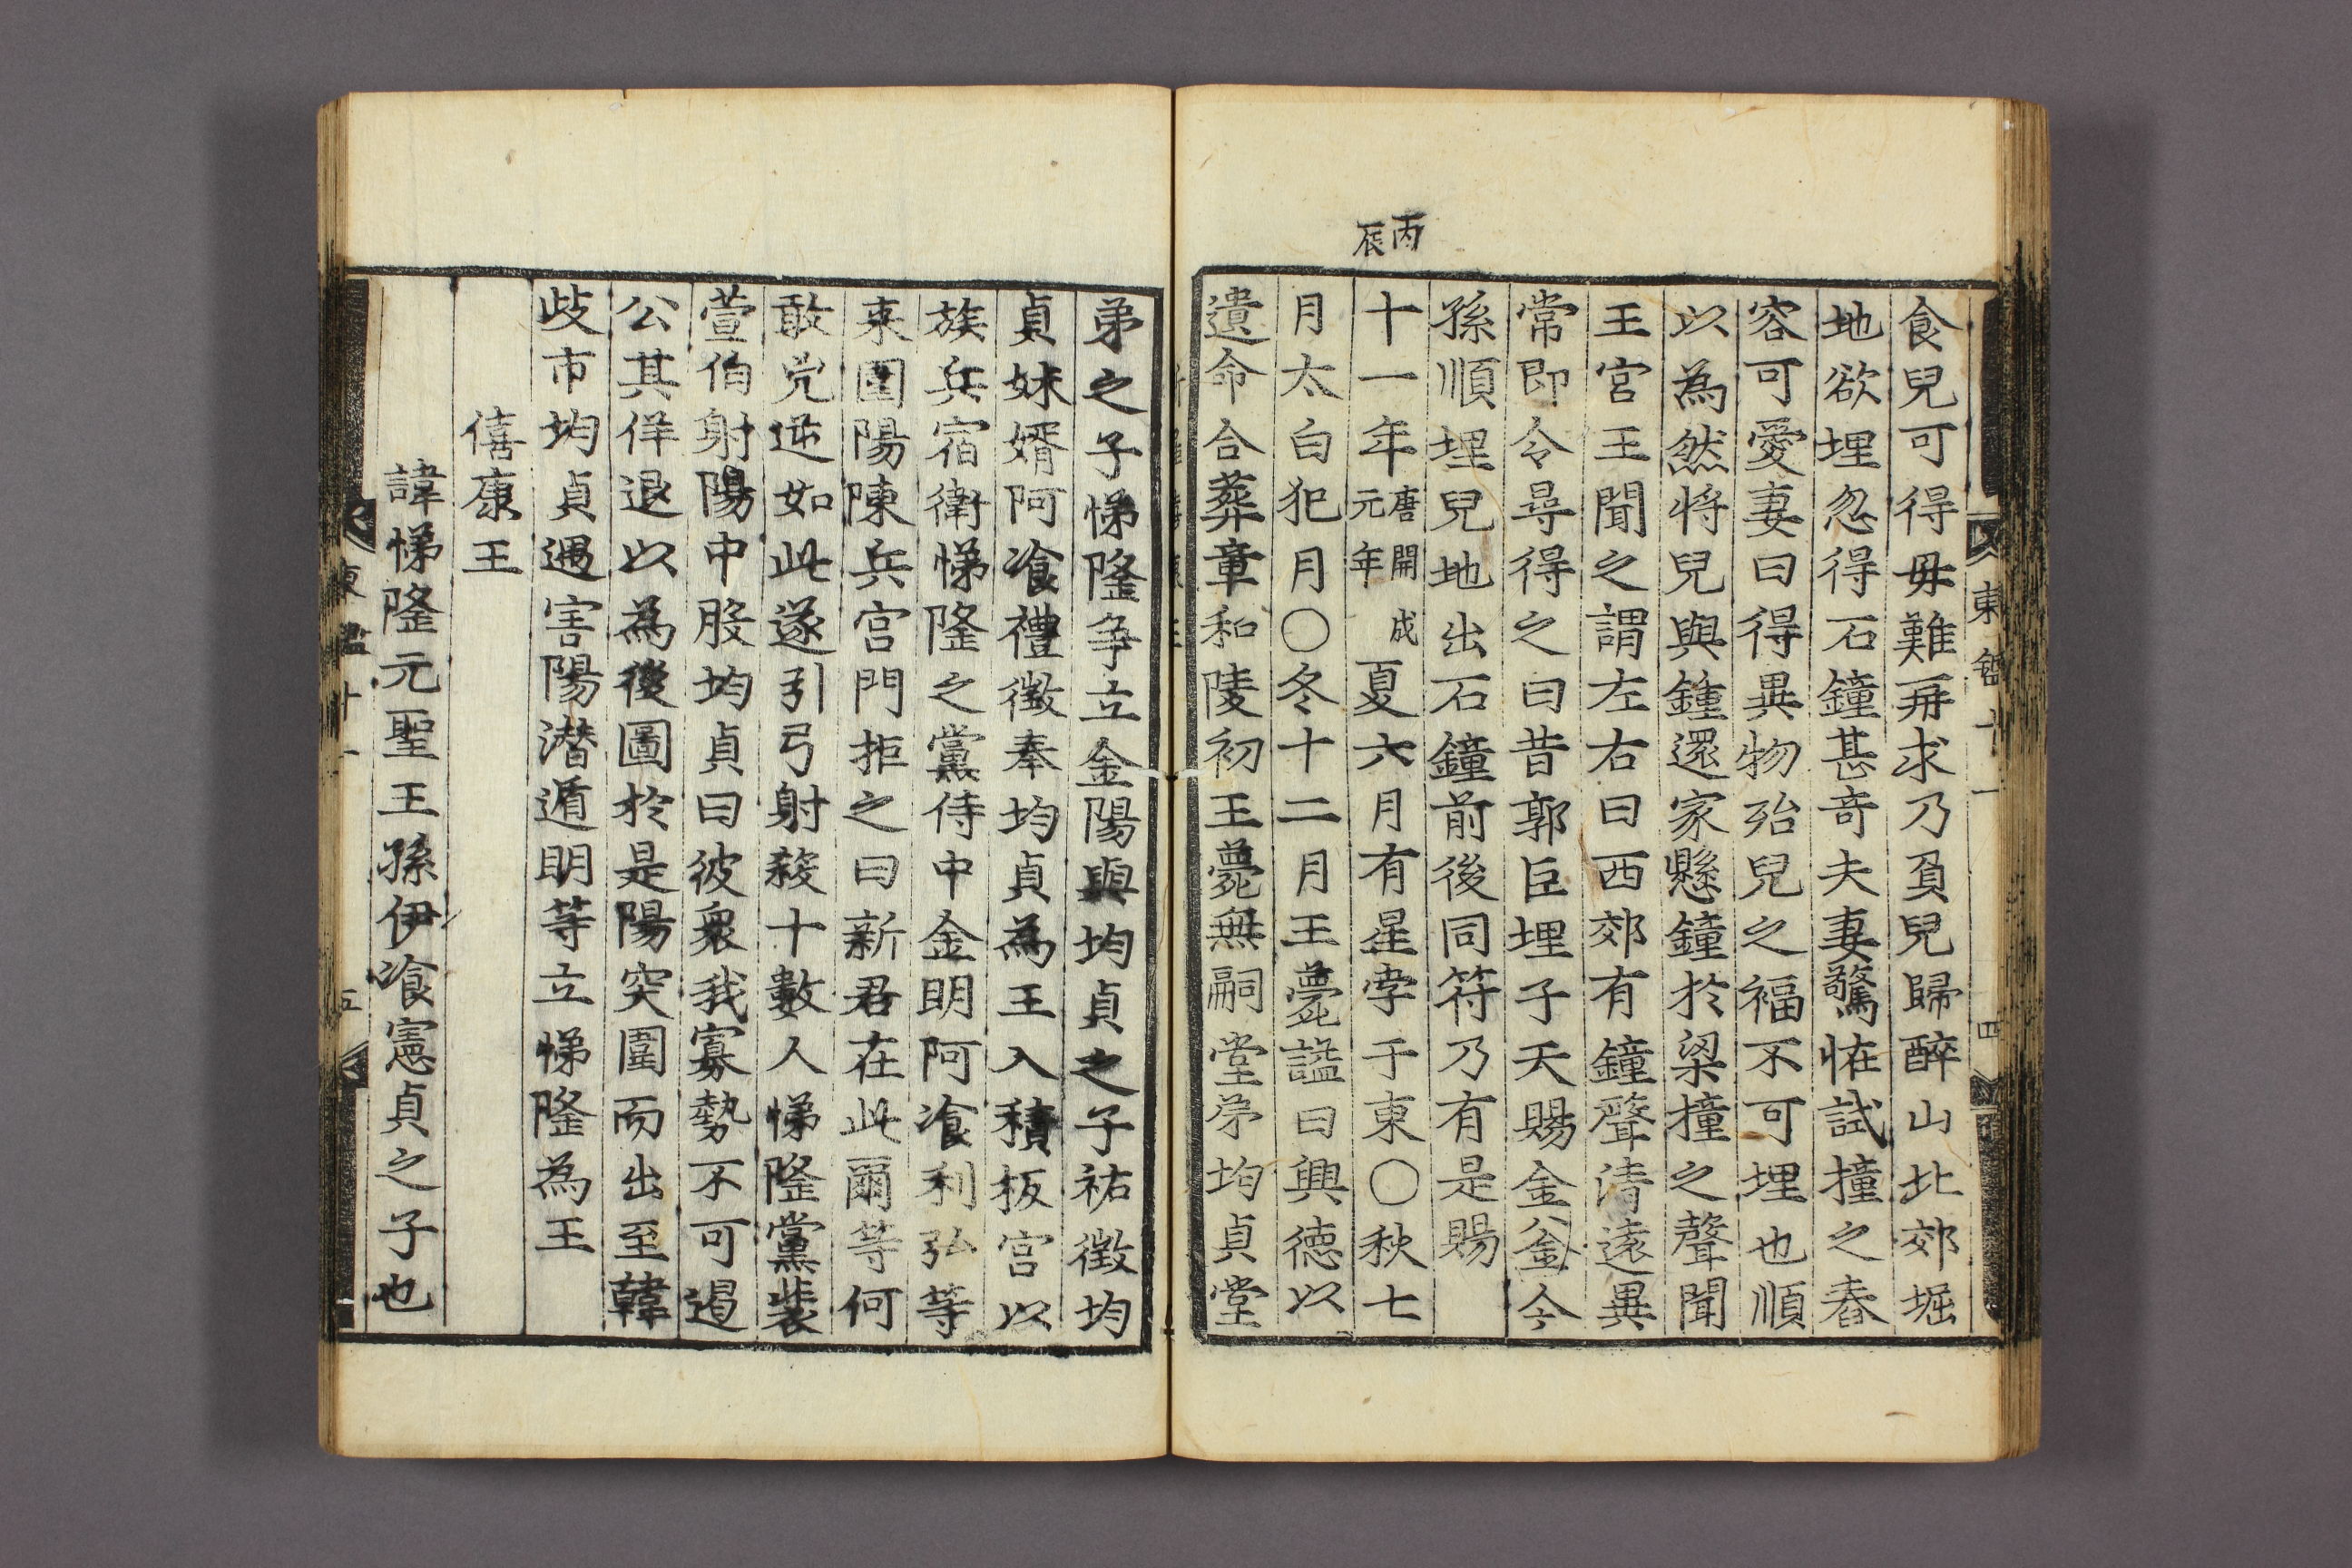 食兒可得毋難再求乃負兒歸醉山北郊堀
地欲埋忽得石鐘甚奇夫妻驚恠試撞之舂
容可愛妻曰得異物殆兒之福不可埋也順
以為然將兒與鐘還家懸鐘於梁撞之聲聞
王宮王聞之謂左右曰西郊有鐘聲清遠異
常即令尋得之曰昔郭巨埋子天賜金釜今
孫順埋兒地出石鐘前後同符乃有是賜
丙辰
十一年唐開成元年夏六月有星孛于東〇秋七
月太白犯月〇冬十二月王薨謚曰興德以
遺命合葬章和陵初王薨無嗣堂弟均貞堂
弟之子悌隆争立金陽與均貞之子祐徴均
貞妹婿阿飡禮徴奉均貞為王入積板宮以
族兵宿衛悌隆之黨侍中金明阿飡利弘等
来圍陽陳兵宮門拒之曰新君在此爾等何
敢兇逆如此遂引弓射殺十數人悌隆黨裴
萱伯射陽中股均貞曰彼衆我寡勢不可遏
公其佯退以為後圖於是陽突圍而出至韓
歧市均貞遇害陽潜遁明等立悌隆為王
僖康王
諱悌隆元聖王孫伊飡憲貞之子也
東鑑十一
五
東鑑十一
四